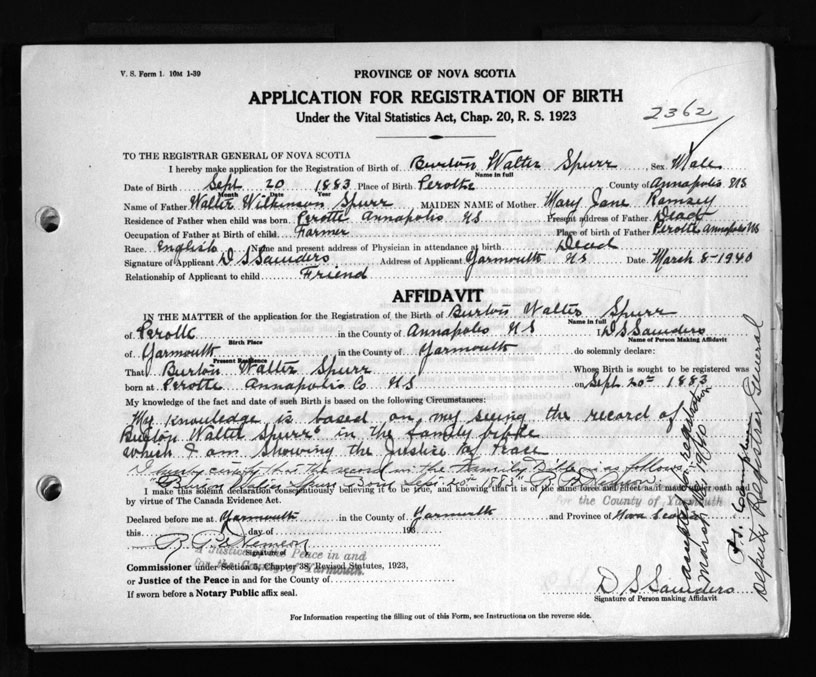 V. S. Form 1. 10M 1-39
PROVINCE OF NOVA SCOTIA
APPLICATION FOR REGISTRATION OF BIRTH
2362
Under the Vital Statistics Act, Chap. 20, R. S. 1923
TO THE REGISTRAR GENERAL OF NOVA SCOTIA
I hereby make application for the Registration of Birth of Burton Walter Spurr Sex Male
Name in full
Date of Birth Sept 20 1883 Place of Birth Perotte County of Annapolis NS
Month Date Year
Name of Father Walter Wilkinson Spurr MAIDEN NAME of Mother Mary Jane Ramsey
Residence of Father when child was born Perotte Annapolis NS Present address of Father Dead
Occupation of Father at Birth of child Farmer Place of birth of Father Perotte Annapolis NS
Race English Name and present address of Physician in attendance at birth Dead
Signature of Applicant D S Saunders Address of Applicant Yarmouth NS Date March 8-1940
Relationship of Applicant to child Friend
AFFIDAVIT
IN THE MATTER of the application for the Registration of the Birth of Burton Walter Spurr
Name in full
of Perotte in the County of Annapolis NS I, D S Saunders
Birth Place Name of Person Making Affidavit
of Yarmouth in the County of Yarmouth do solemnly declare:
Present Residence
That Burton Walter Spurr Whose Birth is sought to be registered was
born at Perotte Annapolis Co NS on Sept 20th 1883
My knowledge of the fact and date of such Birth is based on the following Circumstances:
My knowledge is based on my seeing the record of
Burton Walter Spurr in the family bible
which I am showing the Justice of Peace
I hereby certify that the record in the Family Bible is as follows
"Burton Walter Spurr Born Sept. 20th 1883"
I make this solemn declaration conscientiously believing it to be true, and knowing that it is of the same force and effect as if made under oath and
by virtue of The Canada Evidence Act.
for the County of Yarmouth
Declared before me at Yarmouth in the County of Yarmouth and Province of Nova Scotia
this day of 193
Signature of
a Justice of the Peace in and
for the County of Yarmouth.
Commissioner under Section 5, Chapter 38, Revised Statutes, 1923,
or Justice of the Peace in and for the County of
If sworn before a Notary Public affix seal.
D S Saunders
Signature of Person making Affidavit
For Information respecting the filling out of this Form, see Instructions on the reverse side.
accepted registration
March 1940
Deputy Registrar General